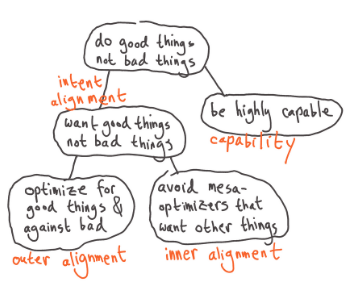 do good things
not bad things
intent
alignment
want good things
not bad things
be highly capable
capability
optimize for
good things &
against bad
outer alignment
avoid mesa-
optimizers that
want other things
inner alignment